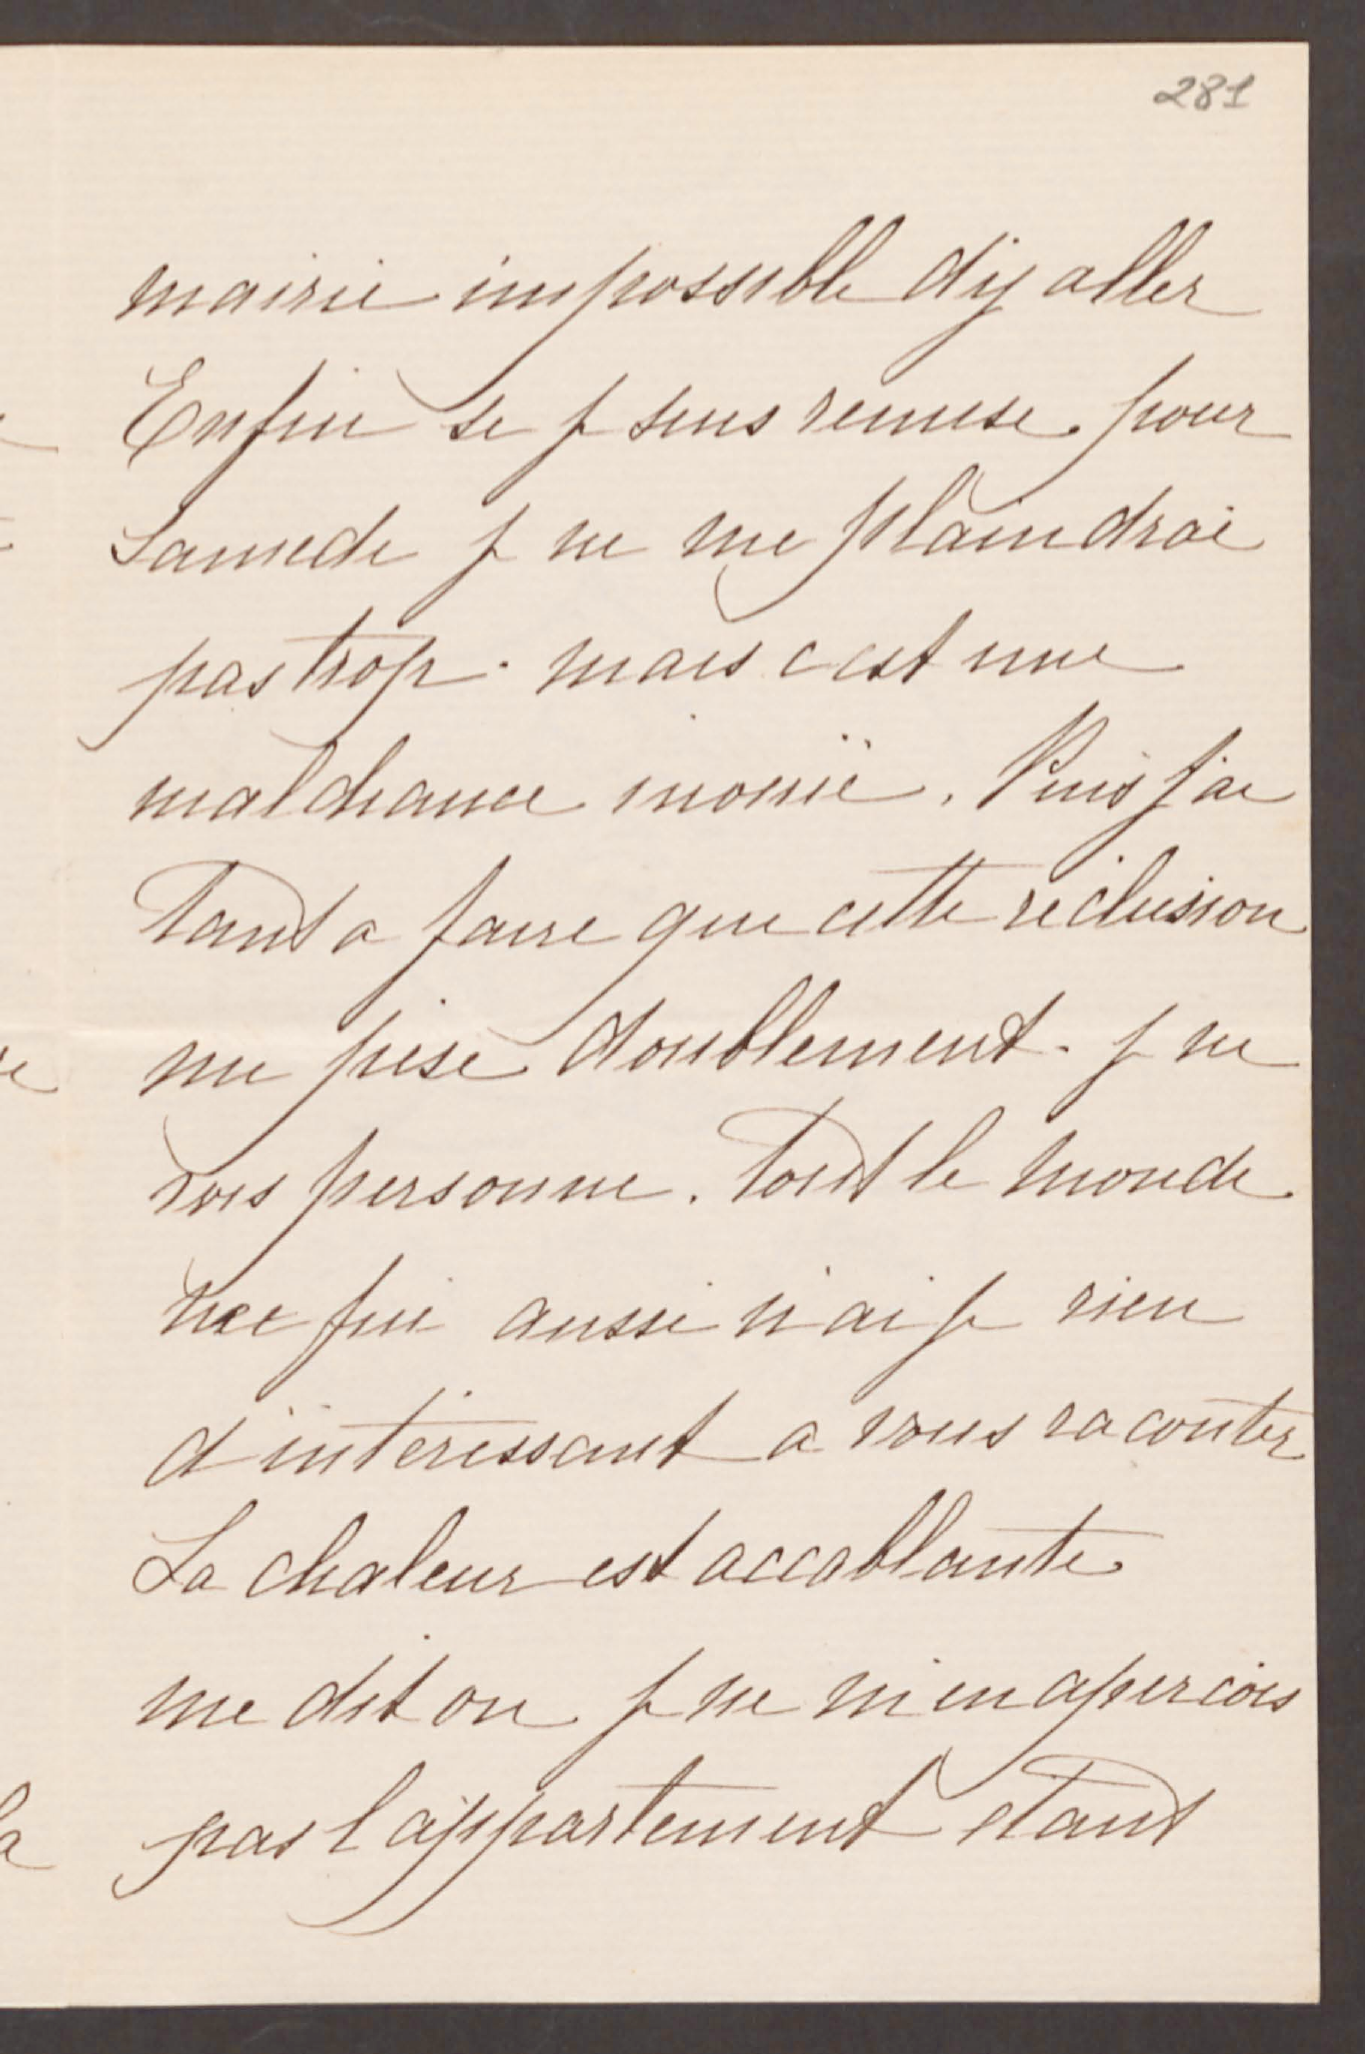 281
mairie impossible d'y aller
Enfin si je suis remise pour
samedi je ne me plaindrai
pas trop. mais c'est une
malchance inouïe. Puis j'ai
tant a faire que cette réclusion
me pèse doublement. je ne
vois personne. Tout le monde
me fui aussi n'ai je rien
d'intéressant a vous raconter
La chaleur est accablante
me dit on je ne m'en apercois
pas l'appartement étant